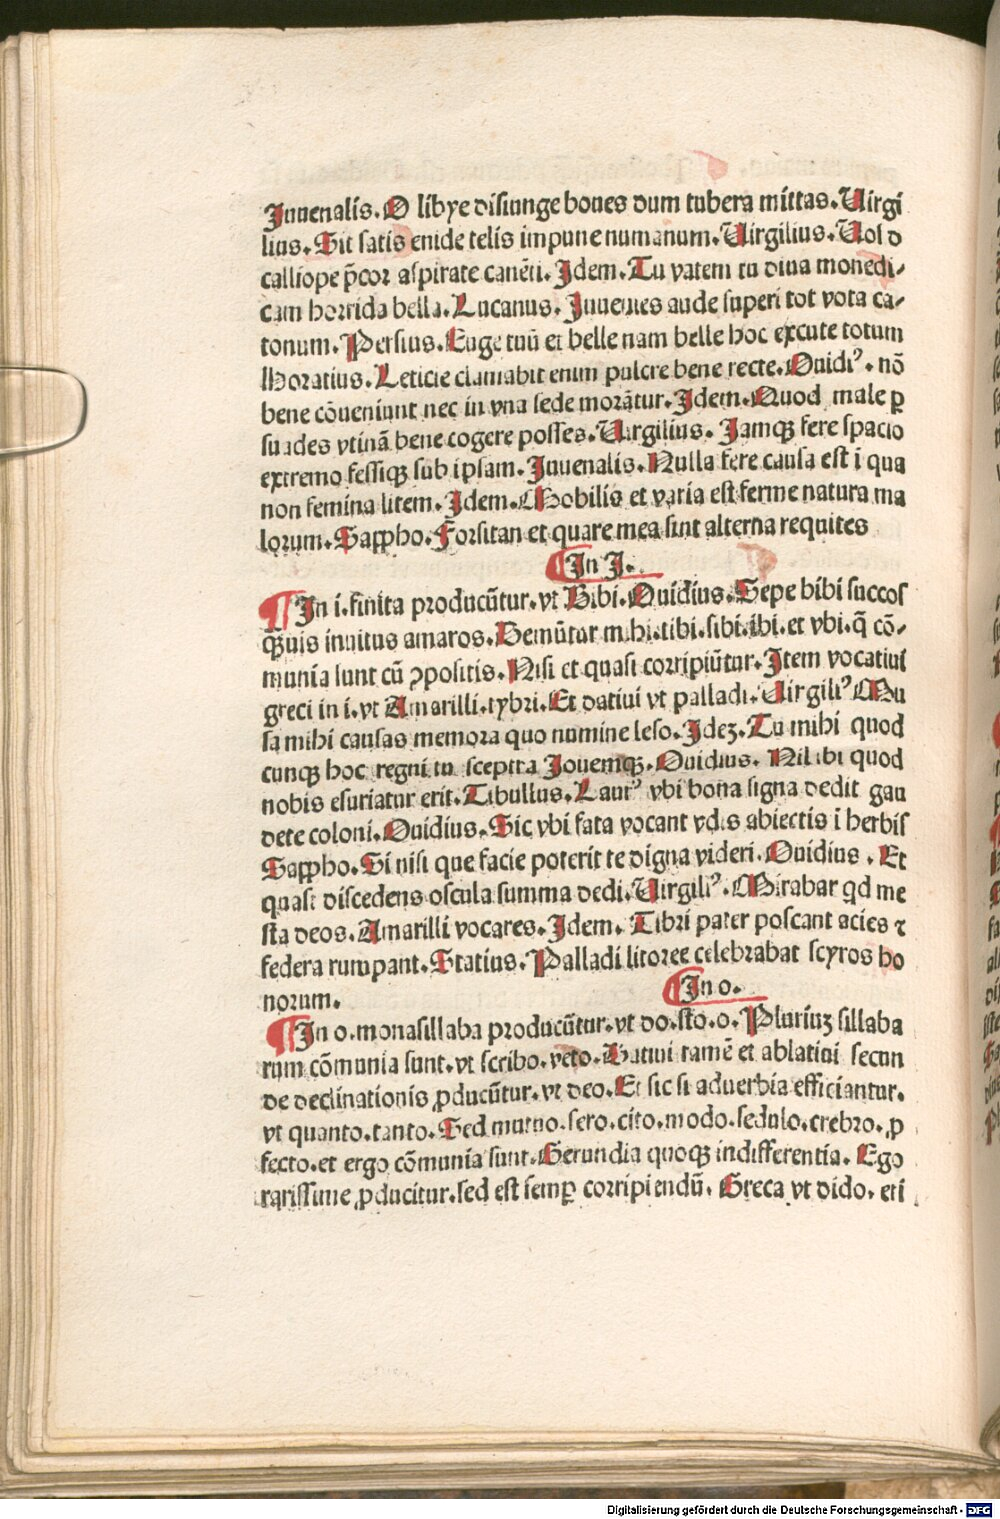 Juuenalis. O libye disiunge boues dum tubera mittas. Uirgi
lius. Sit satis enide telis impune numanum. Uirgilius. Uos o
calliope p̃cor aspirate canēti. Idem. Tu vatem tu diua mone di/
cam horrida bella. Lucanus. Juuenes aude superi tot vota ca/
tonum. Persius. Euge tuū et belle nam belle hoc excute totum
Horatius. Leticie clamabit enim pulcre bene recte. Ouidiꝰ. nō
bene cōueniunt nec in vna sede morātur. Idem. Quod male p
suades vtinā bene cogere posses. Uirgilius. Jamqꝫ fere spacio
extremo fessiqꝫ sub ipsam. Juuenalis. Nulla fere causa est ī qua
non femina litem. Idem. Mobilis et varia est ferme natura ma
lorum. Sappho. Forsitan et quare mea sint alterna requites
¶ In I.
¶ In i. finita producūtur. vt Bibi. Ouidius. Sepe bibi succos
qꝫuis inuitus amaros. Demūtur mihi. tibi. sibi. ibi. et vbi. q̄ cō/
munia sunt cū ꝯpositis. Nisi et quasi corripiūtur. Item vocatiui
greci in i. vt Amarilli. tybri. Et datiui vt palladi. Uirgiliꝰ Mu
sa mihi causas memora quo numine leso. Ideꝫ. Tu mihi quod
cunqꝫ hoc regni tu sceptra Iouemqꝫ. Ouidius. Nil ibi quod
nobis esuriatur erit. Tibullus. Laurꝰ vbi bona signa dedit gau
dete coloni. Ouidius. Sic vbi fata vocant vdis abiectis ī herbis
Sappho. Si nisi que facie poterit te digna videri. Ouidius. Et
quasi discedens oscula summa dedi. Uirgiliꝰ. Mirabar qd me
sta deos. Amarilli vocares. Idem. Tibri pater poscant acies ⁊
federa rumpant. Statius. Palladi litoree celebrabat scyros ho
norum.
¶ In o.
¶ In o. monasillaba producūtur. vt do. sto. o. Pluriuꝫ sillaba
rum cōmunia sunt. vt scribo. veto. Datiui tamē et ablatiui secun
de declinationis ꝓducūtur. vt deo. Et sic si aduerbia efficiantur.
vt quanto. tanto. Sed mutuo. sero. cito. modo. sedulo. crebro. ꝓ
fecto. et ergo cōmunia sunt. Gerundia quoqꝫ indifferentia. Ego
rarissime ꝓducitur. sed est semꝑ corripiendū. Greca vt dido. eti
Digitalisierung gefördert durch die Deutsche Forschungsgemeinschaft - DFG